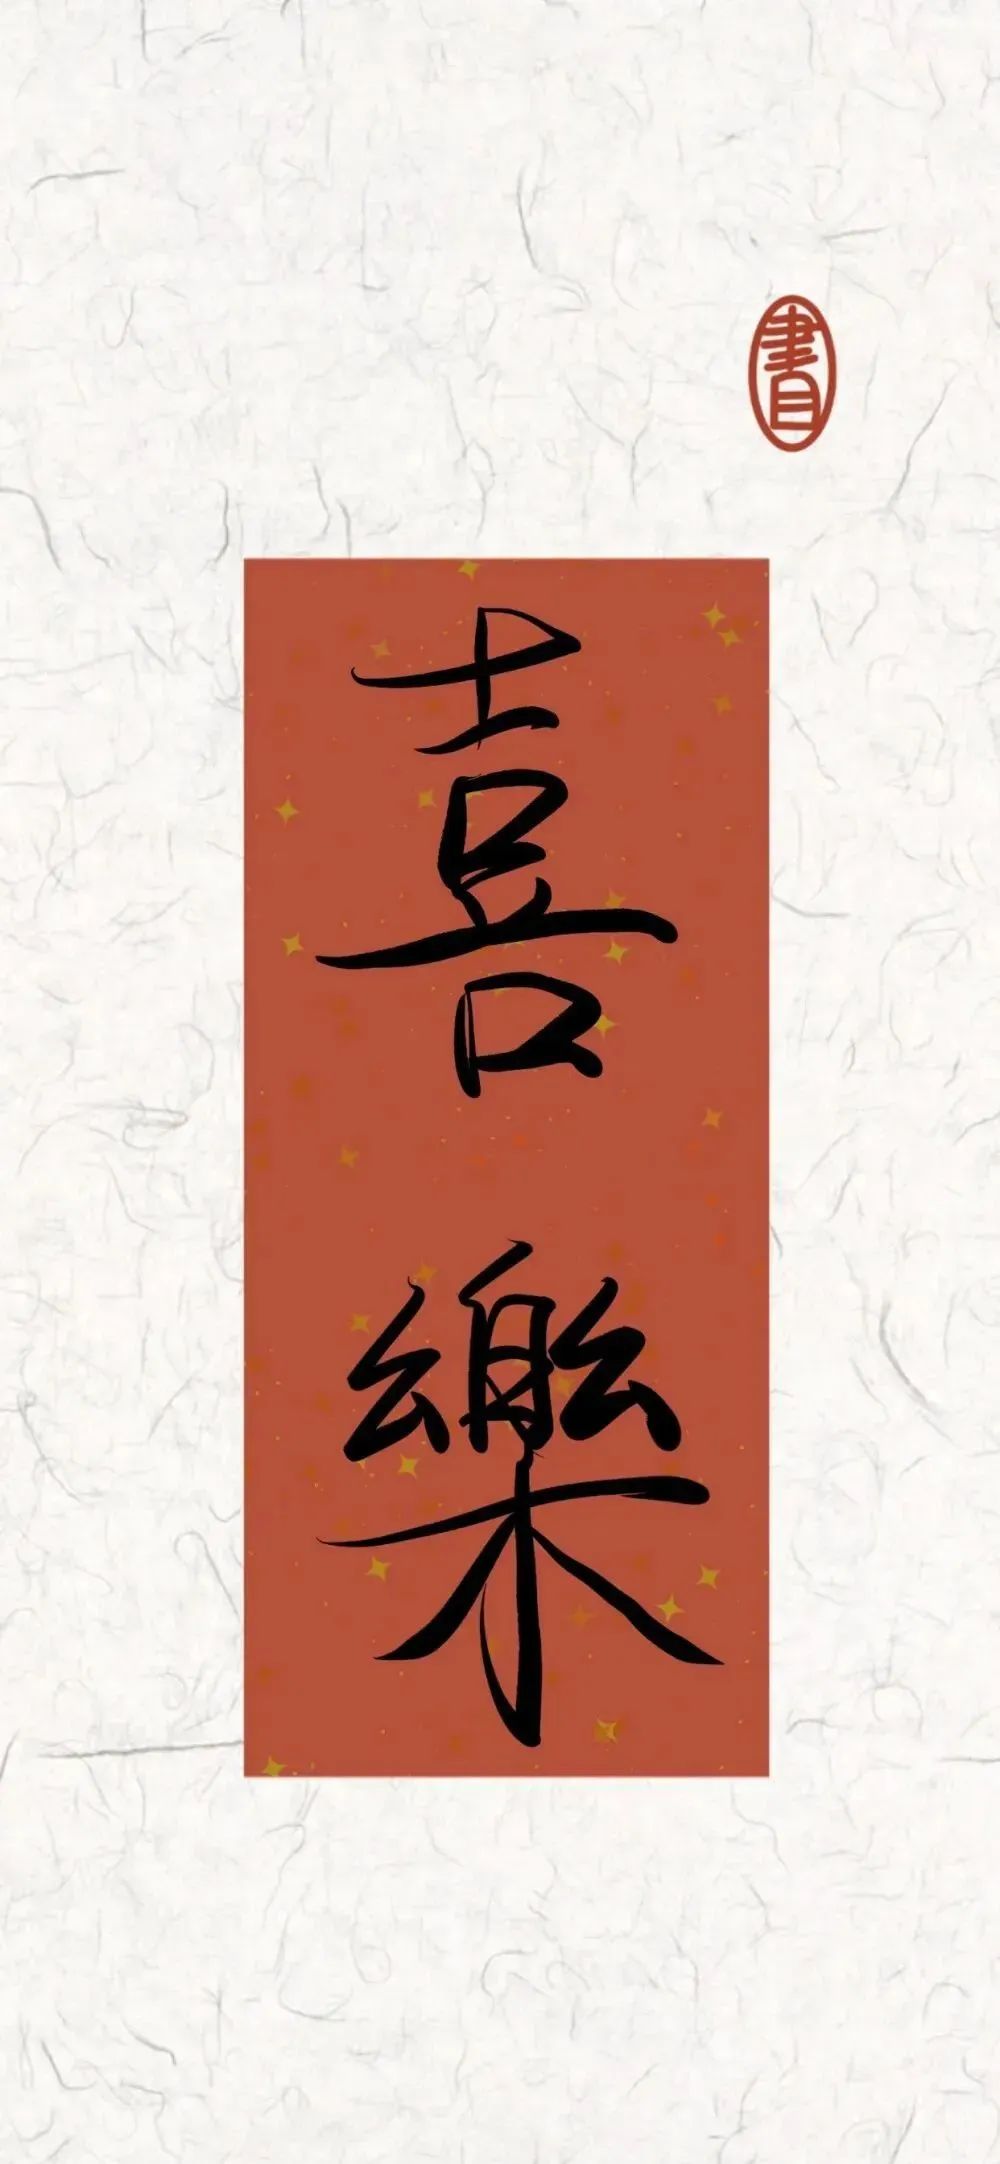 書
喜樂